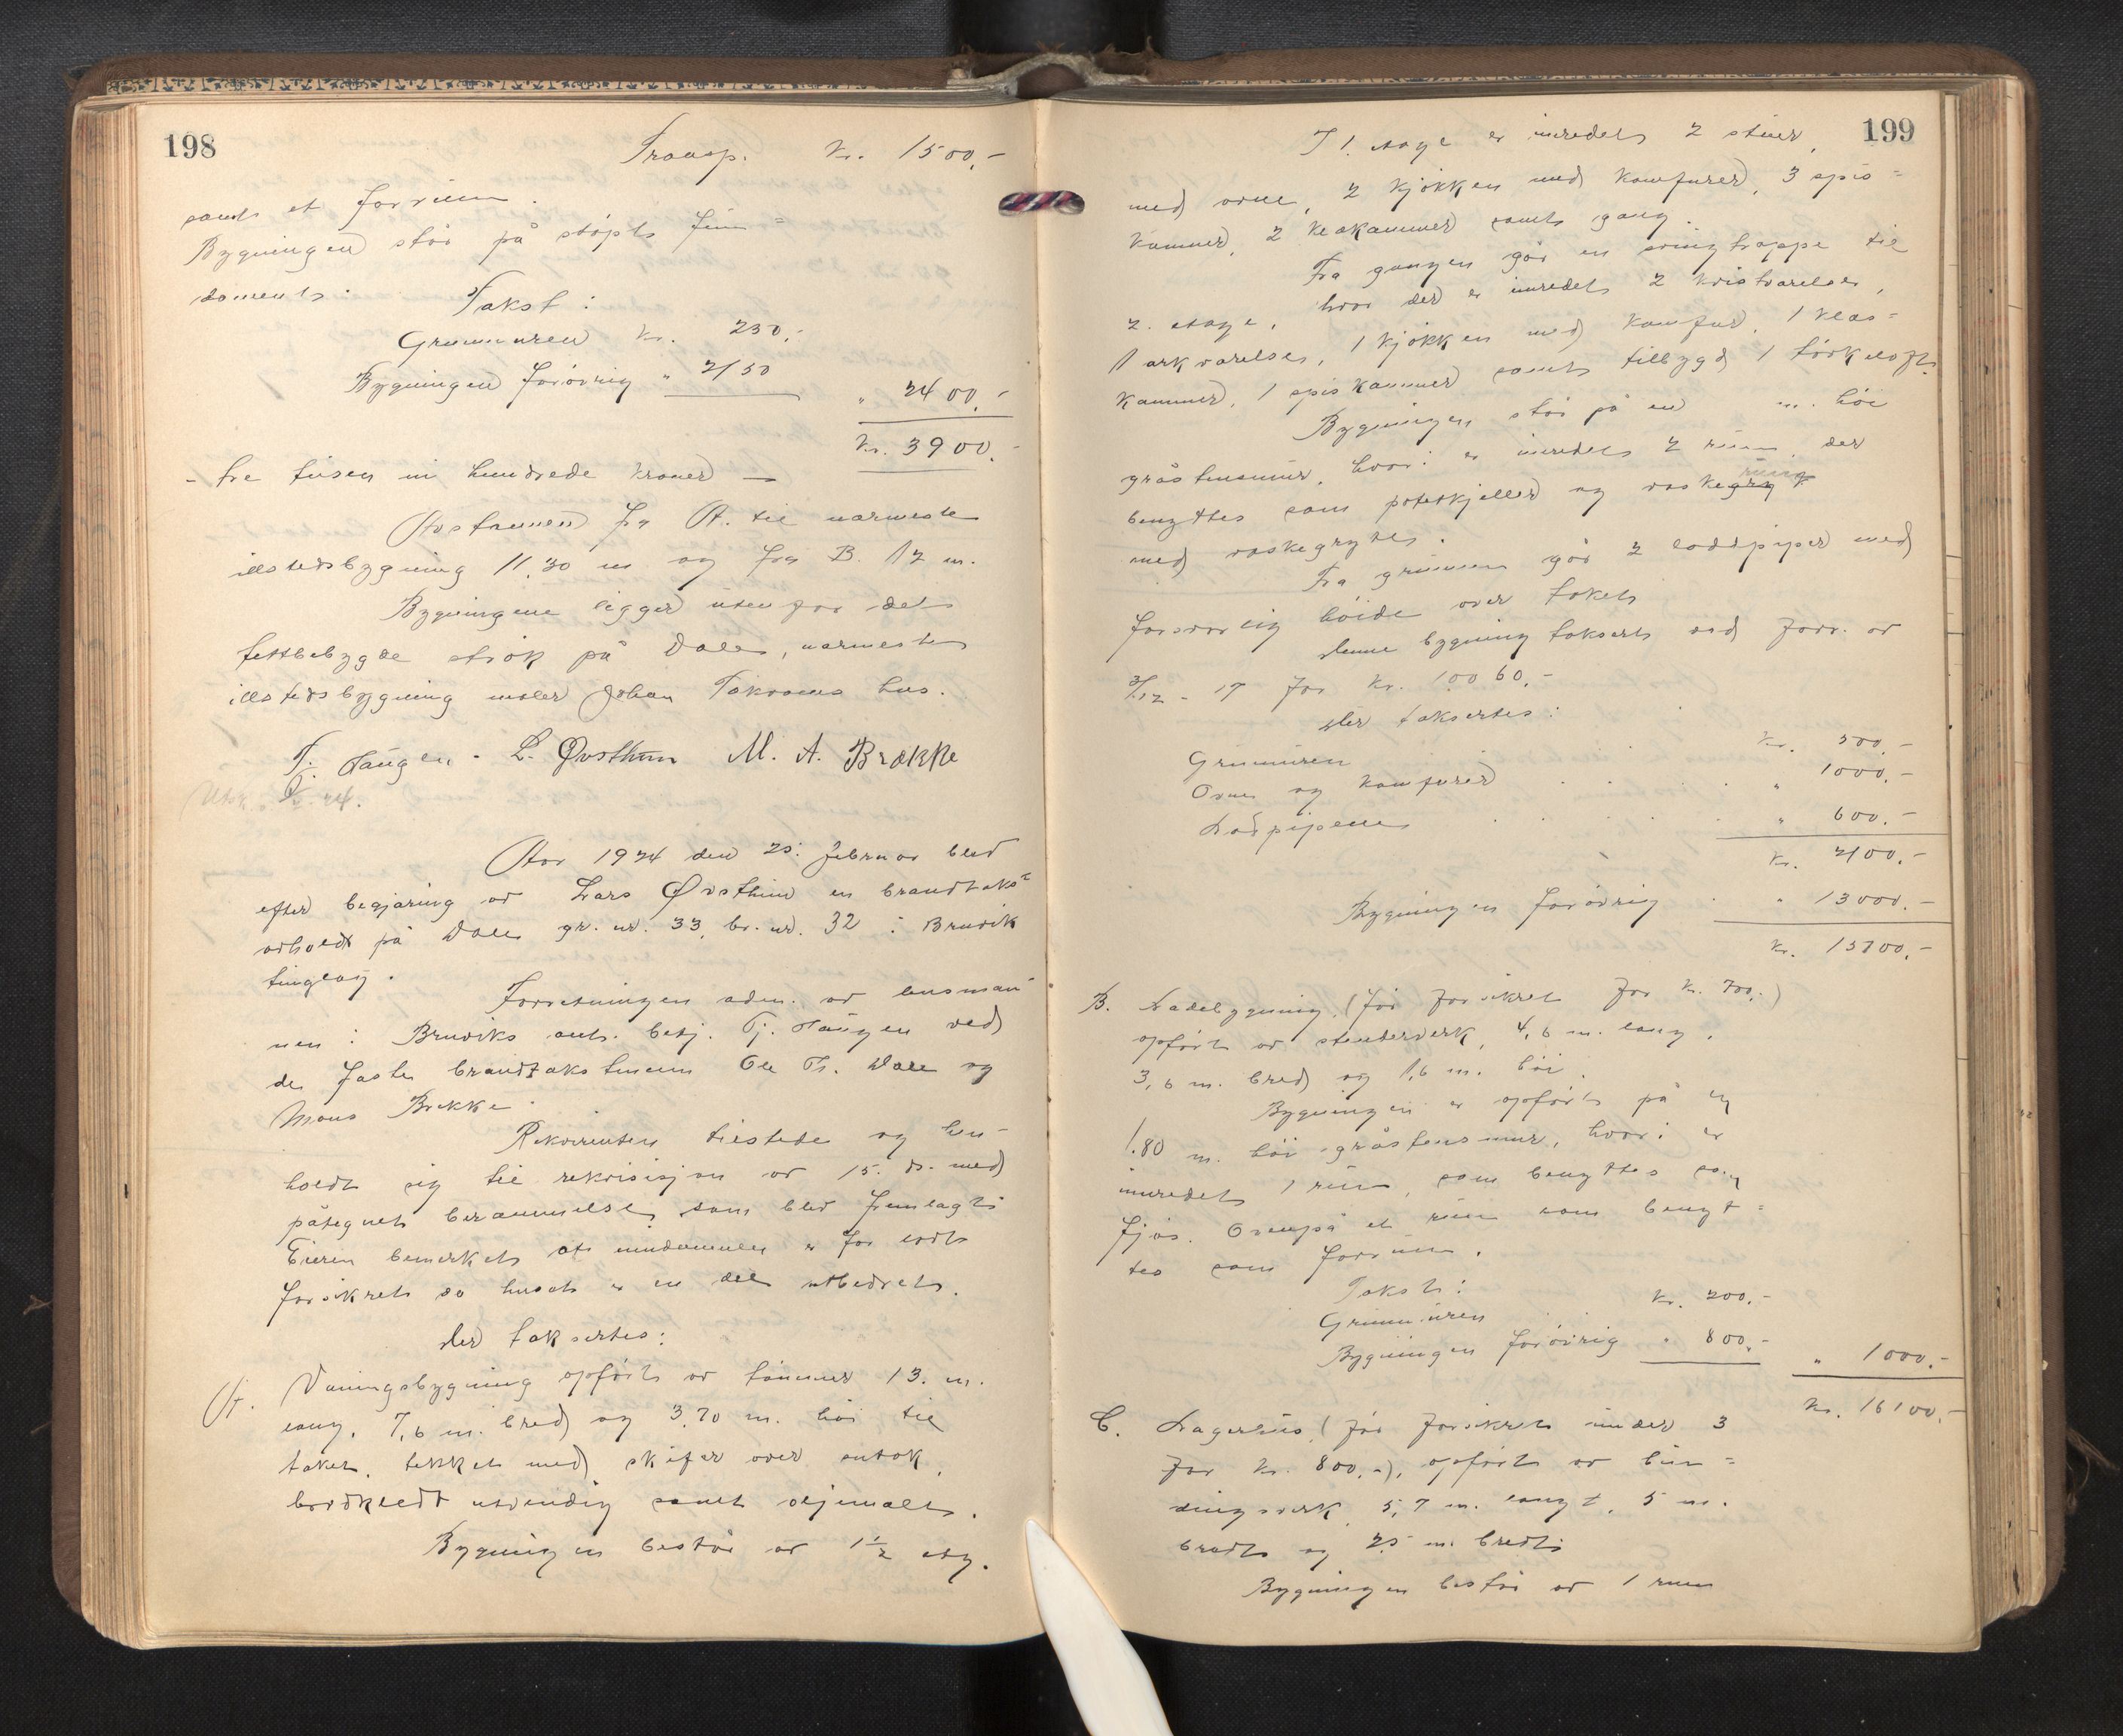 198
Transp. Kr. 1500,-
samt et forrum.
Bygningen står på støpt fun=
dament.
Takst:
Grunmuren Kr. 250,-
Bygningen forøvrig " 2150
" 2400,-
Kr. 3900,-
- tre tusen ni hundrede kroner -
Avstannen fra A. til nærmeste
illstedsbygning 11,30 m og fra B. 12 m.
Bygningene ligger utenfor det
tettbebygde strøk på Dale, nærmeste
illstedsbygning Johan Tokvams hus.
Tj. Haugen. L. Øvsthun M. A. Brække
Utsk. 24.
Aar 1924 den 25. februar blev
efter begjæring av Lars Øvsthun en brandtakst
avholdt på Dale gr. nr. 33, br. nr. 32 i Bruvik
tinglag.
Forretningen adm. av lensman-
nen i Bruviks aut. betj. Tj. Haugen ved
de faste brandtakstmenn Ole Th. Dale og
Mons Brekke.
Rekvirenten tilstede og hen-
holdt sig til rekvisisjon av 15. ds. med
påtegnet berammelse som blev fremlagt.
Eieren bemerket at eiendommen er for lavt
forsikret da huset er en del utbedret.
Der taksertes:
A. Våningsbygning opført av tømmer 13. m.
lang, 7,6 m. bred og 3,70 m. høi til
taket, tekket med skifer over sutak,
bordkledt utvendig samt oljemalt.
Bygningen består av 1½ etg.
199
I 1. etage er inredet 2 stuer
med ovne, 2 kjøkken med komfurer, 3 spis=
kammer, 2 kleskammer samt gang.
Fra gangen går en svingtrappe til
2. etage, hvor der er inredet 2 kvistværelser,
1 arkværelse, 1 kjøkken med komfur, 1 kles=
kammer, 1 spiskammer samt tilbygd 1 tørkeloft.
Bygningen står på en m. høi
gråstensmur, hvori er inredet 2 rum, der
benyttes som potetkjeller og vaskerum
med vaskegryte.
Fra grunnen går 2 loddpiper med
forsvarlig høide over taket
Denne bygning taksert ved forr. av
3/12 - 17 for Kr. 10060,-
Der taksertes:
Grunmuren Kr. 500,-
Ovne og komfurer " 1000,-
Lodpipene " 600,-
Kr. 2100,-
Bygningen forøvrig " 13000,-
Kr. 15100,-
B. Ladebygning, (før forsikret for Kr. 700,-)
opført av stenderverk, 4,6 m. lang,
3,6 m. bred og 1,6 m. høi.
Bygningen er opført på en
1.80 m. høi gråstensmur, hvori er
inredet 1 rum, som benyttes som
fjøs. Ovenpå et rum som benyt=
tes som forrum.
Takst:
Grunmuren Kr. 200,-
Bygningen forøvrig " 800,-
" 1000,-
Kr. 16100,-
C. Lagerhus, (før forsikret under 3
for Kr. 800,-), opført av bin=
dingsverk 5,7 m. langt, 5 m.
bredt og 2,5 m. bredt.
Bygningen består av 1 rum